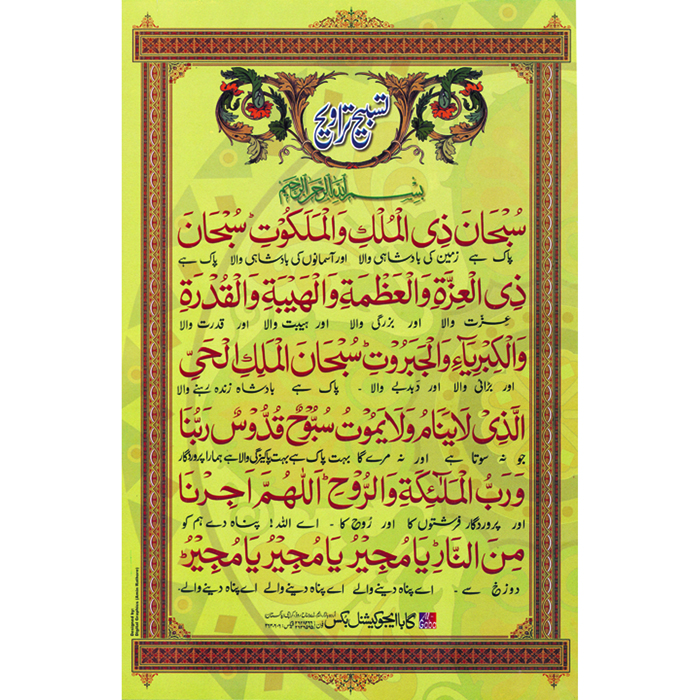 تسبیح تراویح
بسم اللہ الرحمن الرحیم
سُبْحَانَ ذِی الْمُلْكِ وَالْمَلَكُوْتِ ؕ سُبْحَانَ
پاک ہے زمین کی بادشاہی والا اور آسمانوں کی بادشاہی والا پاک ہے
ذِی الْعِزَّةِ وَالْعَظَمَةِ وَالْهَیْبَةِ وَالْقُدْرَةِ
عزت والا اور بزرگی والا اور ہیبت والا اور قدرت والا
وَالْكِبْرِیَاءِ وَالْجَبَرُوْتِ ؕ سُبْحَانَ الْمَلِكِ الْحَیِّ
اور بڑائی والا اور دبدبے والا - پاک ہے بادشاہ زندہ رہنے والا
الَّذِیْ لَا یَنَامُ وَلَا یَمُوْتُ سُبُّوْحٌ قُدُّوْسٌ رَبُّنَا
جو نہ سوتا ہے اور نہ مرے گا بہت پاک ہے بہت پاکیزگی والا ہے ہمارا پروردگار
وَرَبُّ الْمَلٰٓئِكَةِ وَالرُّوْحِ ؕ اَللّٰهُمَّ اَجِرْنَا
اور پروردگار فرشتوں کا اور رُوح کا - اے اللہ! پناہ دے ہم کو
مِنَ النَّارِ ؕ یَا مُجِیْرُ یَا مُجِیْرُ یَا مُجِیْرُ ؕ
دوزخ سے - اے پناہ دینے والے اے پناہ دینے والے اے پناہ دینے والے.
گابا ایجوکیشنل بکس
Designed by:
Digital Graphics (Amin Katharo)